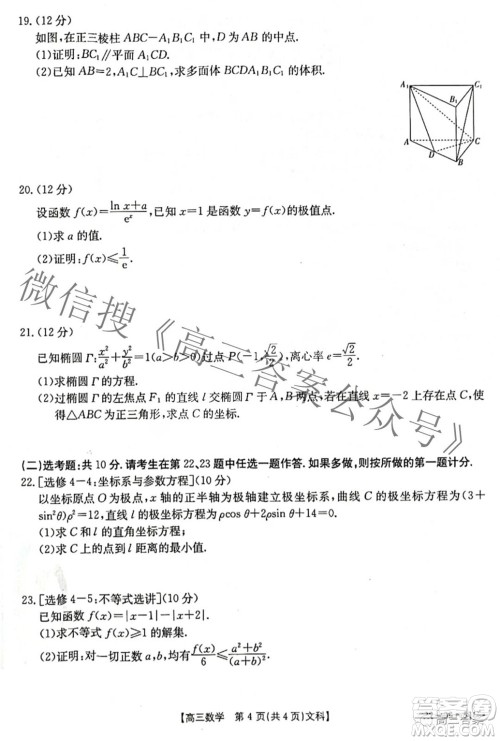 19.(12分)
如图,在正三棱柱 ABC-A₁B₁C₁ 中,D 为 AB 的中点.
(1)证明:BC₁∥平面 A₁CD.
(2)已知 AB=2,A₁C⊥BC₁,求多面体 BCDA₁B₁C₁ 的体积.
A₁
C₁
B₁
A
C
D
B
20.(12分)
设函数 f(x)=(ln x+a)/eˣ,已知 x=1 是函数 f(x)的极值点.
(1)求 a 的值.
(2)证明:f(x)≤1/e.
21.(12分)
已知椭圆 Γ:x²/a²+y²/b²=1(a>b>0)过点 P(-1,√2/2),离心率 e=√2/2.
(1)求椭圆 Γ 的方程.
(2)过椭圆 Γ 的左焦点 F₁ 的直线 l 交椭圆 Γ 于 A,B 两点,若在直线 x=-2 上存在点 C,使
得△ABC 为正三角形,求点 C 的坐标.
(二)选考题:共 10 分.请考生在第 22、23 题中任选一题作答.如果多做,则按所做的第一题计分.
22.[选修 4-4:坐标系与参数方程](10分)
以坐标原点 O 为极点,x 轴的正半轴为极轴建立极坐标系.已知曲线 C 的极坐标方程为(3+
sin²θ)ρ²=12,直线 l 的极坐标方程为 ρcos θ+2ρsin θ+14=0.
(1)求 C 和 l 的直角坐标方程;
(2)求 C 上的点到 l 距离的最小值.
23.[选修 4-5:不等式选讲](10分)
已知函数 f(x)=|x-1|-|x-3|.
(1)求不等式 f(x)≥1 的解集.
(2)证明:对一切正数 a,b,均有 f(x)/6≤(a²+b²)/(a+b)².
【高三数学 第 4 页(共 4 页)文科】
微信搜《高三答案公众号》